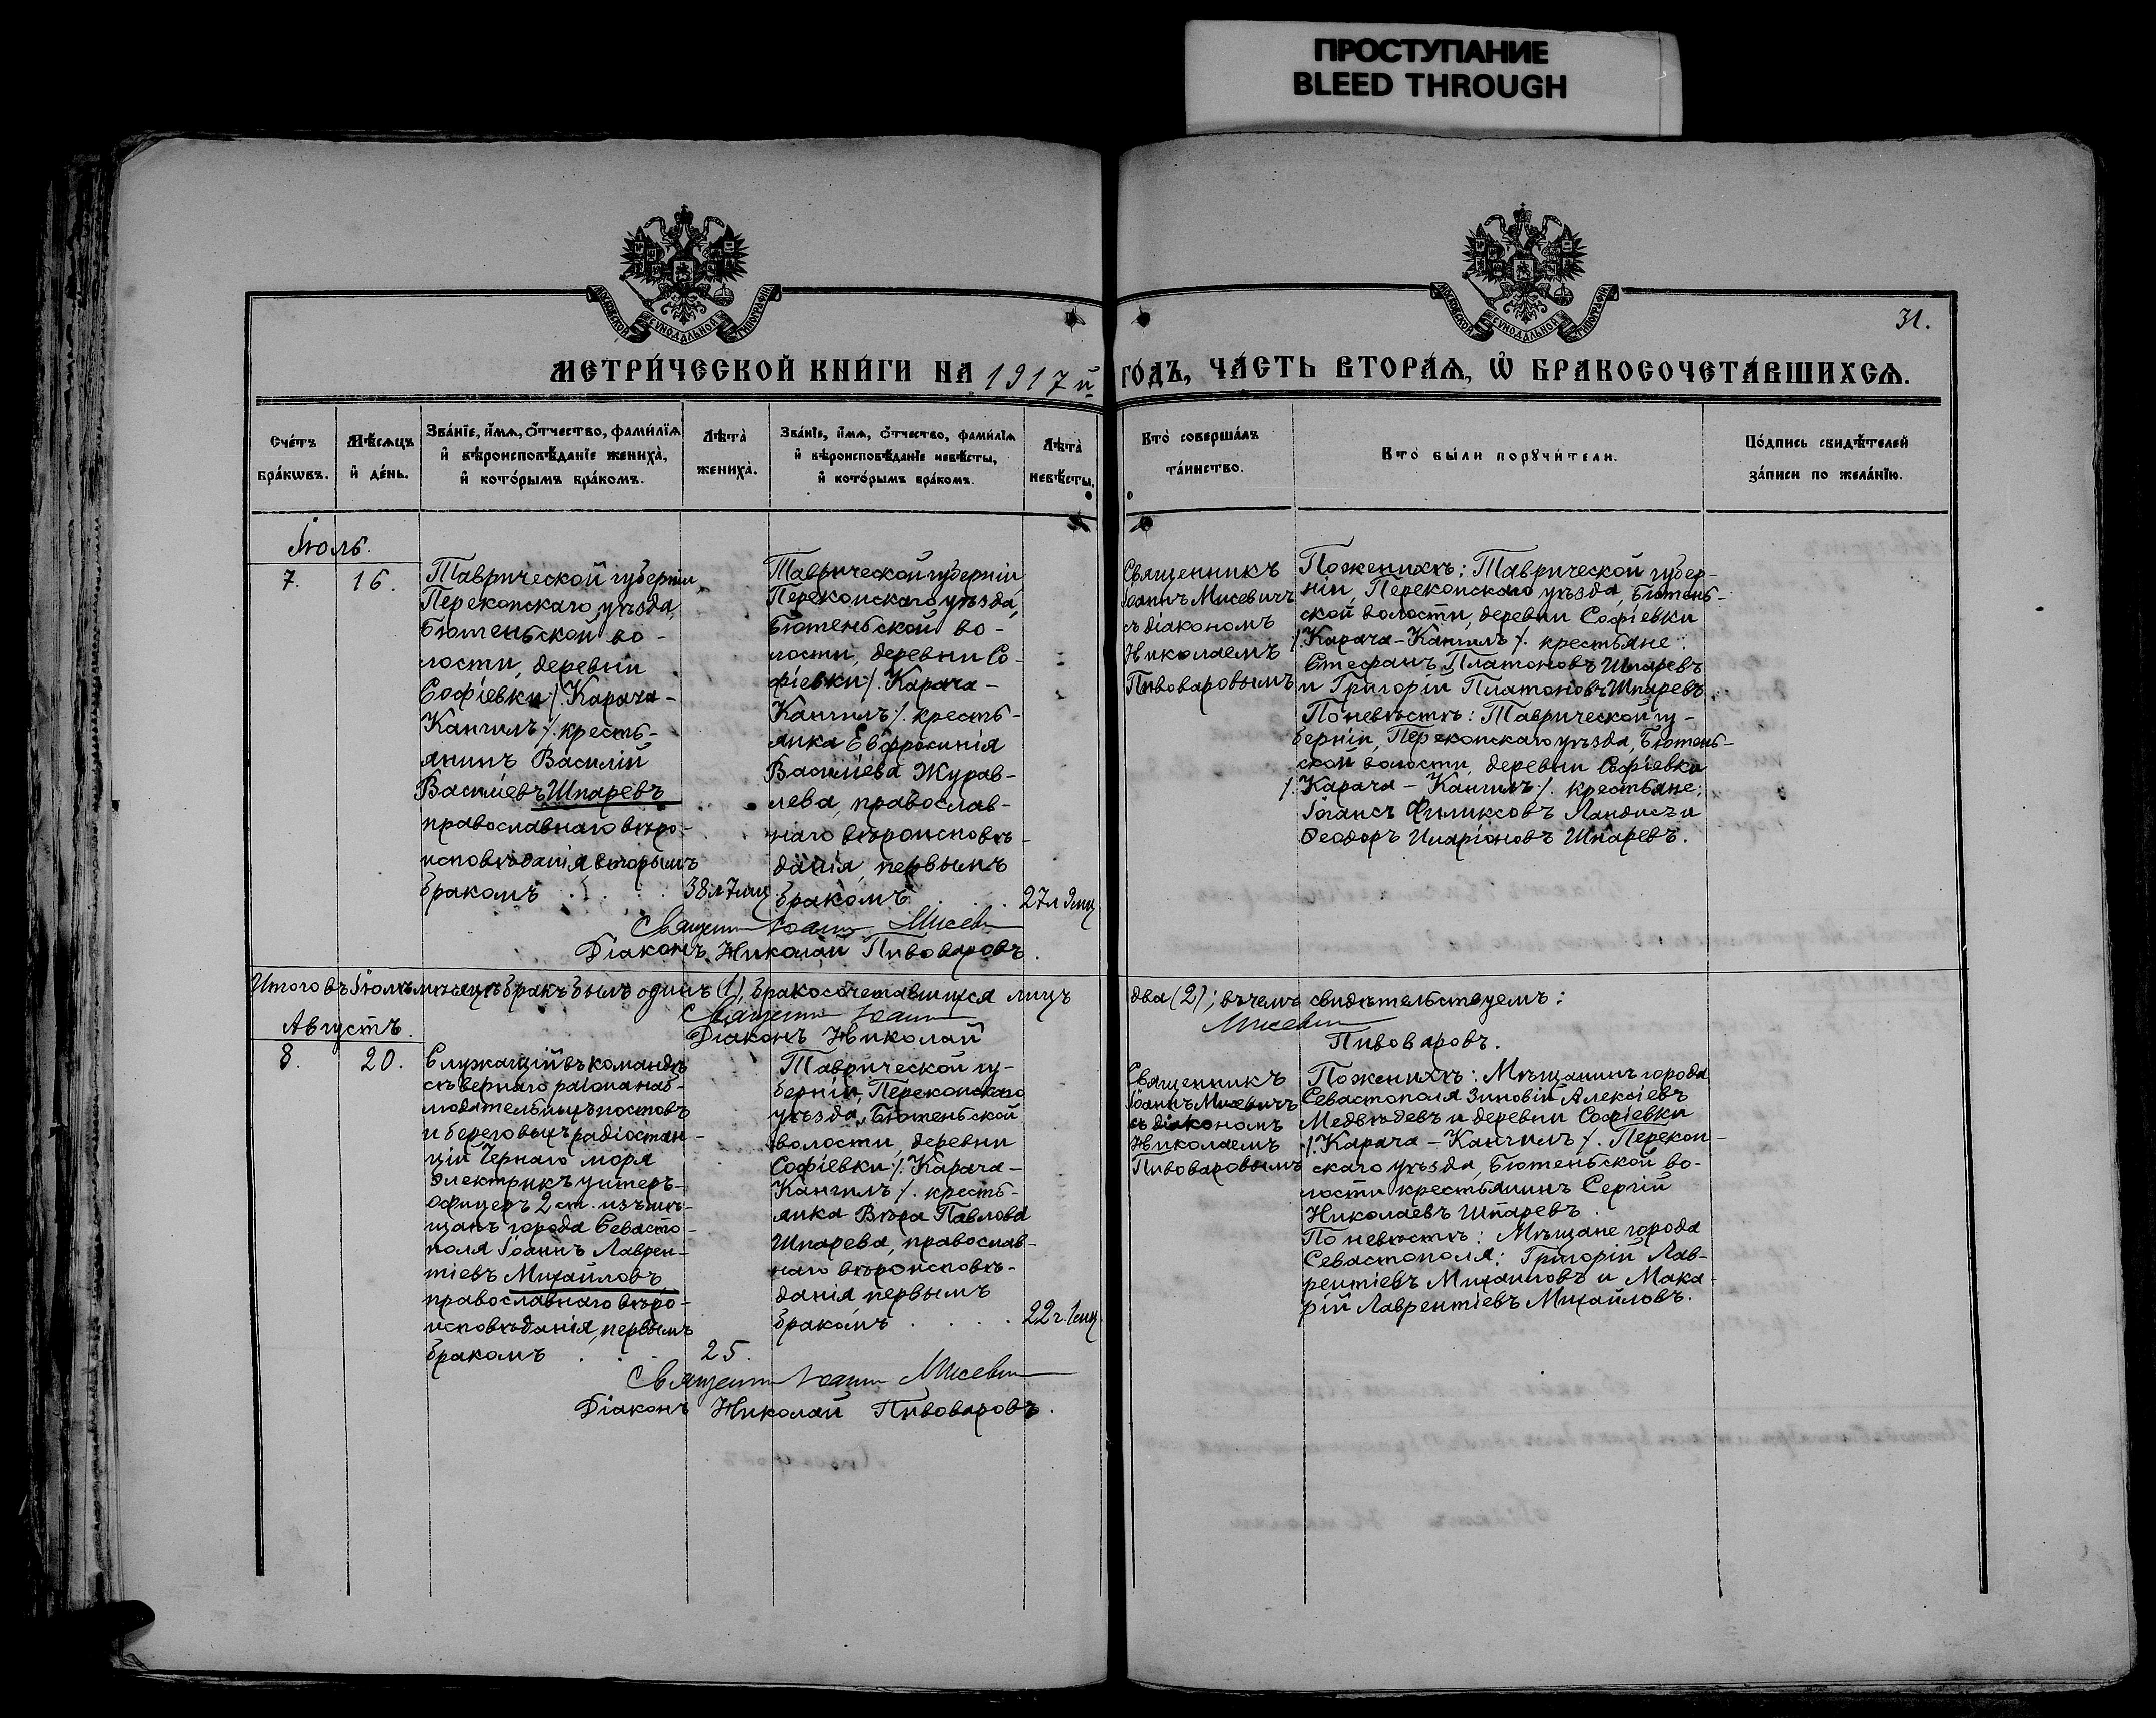 ПРОСТУПАНИЕ
BLEED THROUGH
МОСКОВСКОЙ СѴНОДАЛЬНОЙ ТИПОГРАФІИ
МОСКОВСКОЙ СѴНОДАЛЬНОЙ ТИПОГРАФІИ
31.
МЕТРИ́ЧЕСКОЙ КНИ́ГИ НА 1917й ГО́ДЪ, ЧА́СТЬ ВТОРА́Ѧ, Ѡ҆ БРАКОСОЧЕТА́ВШИХСѦ.
Сче́тъ
бра́кѡвъ.
Мѣ́сѧцъ
и҆ де́нь.
Зва́нїе, и҆́мѧ, о҆́тчество, фами́лїѧ
и҆ вѣроисповѣ́данїе жениха̀,
и҆ кото́рымъ бра́комъ.
Лѣта̀
жениха̀.
Зва́нїе, и҆́мѧ, о҆́тчество, фами́лїѧ
и҆ вѣроисповѣ́данїе невѣ́сты,
и҆ кото́рымъ бра́комъ.
Лѣта̀
невѣ́сты.
Кто̀ соверша́лъ
та́инство.
Кто̀ бы́ли порꙋчи́тели.
По́дпись свидѣ́телей
за́писи по жела́нїю.
Іюль.
7.
16.
Таврической губерніи,
Перекопскаго уѣзда,
Бютеньской во-
лости, деревни
Софіевки /. Карача-
Кангилъ /. кресть-
янинъ Василій
Васильевъ Шпаревъ
православнаго вѣро-
исповѣданія вторымъ
бракомъ
38 л 7 мц
Таврической губерніи
Перекопскаго уѣзда,
Бютеньской во-
лости, деревни Со-
фіевки /. Карача-
Кангилъ /. кресть-
янка Евфросинія
Васильева Журав-
лева, православ-
наго вѣроисповѣ-
данія, первымъ
бракомъ
27 л 9 мц
Священникъ
Іоаннъ Мисевичъ
съ діакономъ
Николаемъ
Пивоваровымъ
По женихѣ: Таврической губер-
ніи, Перекопскаго уѣзда, Бютень-
ской волости, деревни Софіевки
/. Карача-Кангилъ /. крестьяне:
Стефанъ Платоновъ Шпаревъ
и Григорій Платоновъ Шпаревъ.
По невѣстѣ: Таврической гу-
берніи, Перекопскаго уѣзда, Бютень-
ской волости, деревни Софіевки
/. Карача-Кангилъ /. крестьяне:
Іогансъ Филиксовъ Ландисъ и
Ѳеодоръ Иларіоновъ Шпаревъ.
Священникъ Іоаннъ Мисевичъ
Діаконъ Николай Пивоваровъ.
Итого въ Іюлѣ мѣсяцѣ бракъ былъ одинъ (1), бракосочетавшихся лицъ два (2); въ чемъ свидѣтельствуемъ:
Священникъ Іоаннъ Мисевичъ
Діаконъ Николай Пивоваровъ.
Августъ.
8.
20.
Служащій въ командѣ
сѣвернаго раіона наб-
людательныхъ постовъ
и береговыхъ радіостан-
цій Чернаго моря
электрикъ унтеръ-
офицеръ 2 ст. изъ мѣ-
щанъ города Севасто-
поля Іоаннъ Лаврен-
тіевъ Михайловъ
православнаго вѣро-
исповѣданія, первымъ
бракомъ
25.
Таврической гу-
берніи, Перекопскаго
уѣзда, Бютеньской
волости, деревни
Софіевки /. Карача-
Кангилъ /. кресть-
янка Вѣра Павлова
Шпарева, православ-
наго вѣроисповѣ-
данія, первымъ
бракомъ
22 г. 1 мц.
Священникъ
Іоаннъ Мисевичъ
съ діакономъ
Николаемъ
Пивоваровымъ
По женихѣ: Мѣщанинъ города
Севастополя Зиновій Алексіевъ
Медвѣдевъ и деревни Софіевки
/. Карача-Кангилъ /. Перекоп-
скаго уѣзда, Бютеньской во-
лости крестьянинъ Сергій
Николаевъ Шпаревъ.
По невѣстѣ: Мѣщане города
Севастополя: Григорій Лав-
рентіевъ Михайловъ и Мака-
рій Лаврентіевъ Михайловъ.
Священникъ Іоаннъ Мисевичъ
Діаконъ Николай Пивоваровъ.